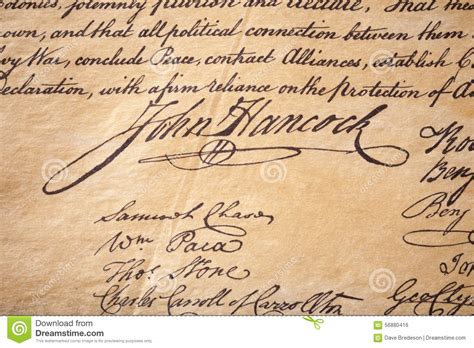 Colonies, solemnly publish and declare, That the
own, and that all political connection between them
levy War, conclude Peace, contract Alliances, establish C
declaration, with a firm reliance on the protection of
John Hancock
Samuel Chase
Wm Paca
Thos Stone
Charles Carroll of Carrollton
Ben
Ben
dreamstime
Download from
Dreamstime.com
This watermarked comp image is for previewing purposes only.
56880416
Dave Bredeson | Dreamstime.com